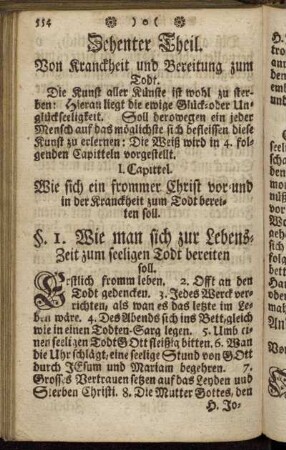 554 ❁ )o( ❁
Zehenter Theil.
Von Kranckheit und Bereitung zum
Todt.
Die Kunst aller Künste ist wohl zu ster-
ben: Hieran liegt die ewige Glück-oder Un-
glückseeligkeit. Soll derowegen ein jeder
Mensch auf das möglichste sich befleissen diese
Kunst zu erlernen: Die Weiß wird in 4. fol-
genden Capitteln vorgestellt.
I. Capittel.
Wie sich ein frommer Christ vor und
in der Kranckheit zum Todt berei-
ten soll.
§. 1. Wie man sich zur Lebens-
Zeit zum seeligen Todt bereiten
soll.
Erstlich fromm leben. 2. Offt an den
Todt gedencken. 3. Jedes Werck ver-
richten, als man es das letzte im Le-
ben wäre. 4. Des Abends sich ins Bett, gleich
wie in einen Todten-Sarg legen. 5. Umb ei-
nen seeligen Todt GOtt fleissig bitten. 6. Wan
die Uhr schlägt, eine seelige Stund von GOtt
durch JEsum und Mariam begehren. 7.
Grosses Vertrauen setzen auf das Leyden und
Sterben Christi. 8. Die Mutter Gottes, den
H. Jo-